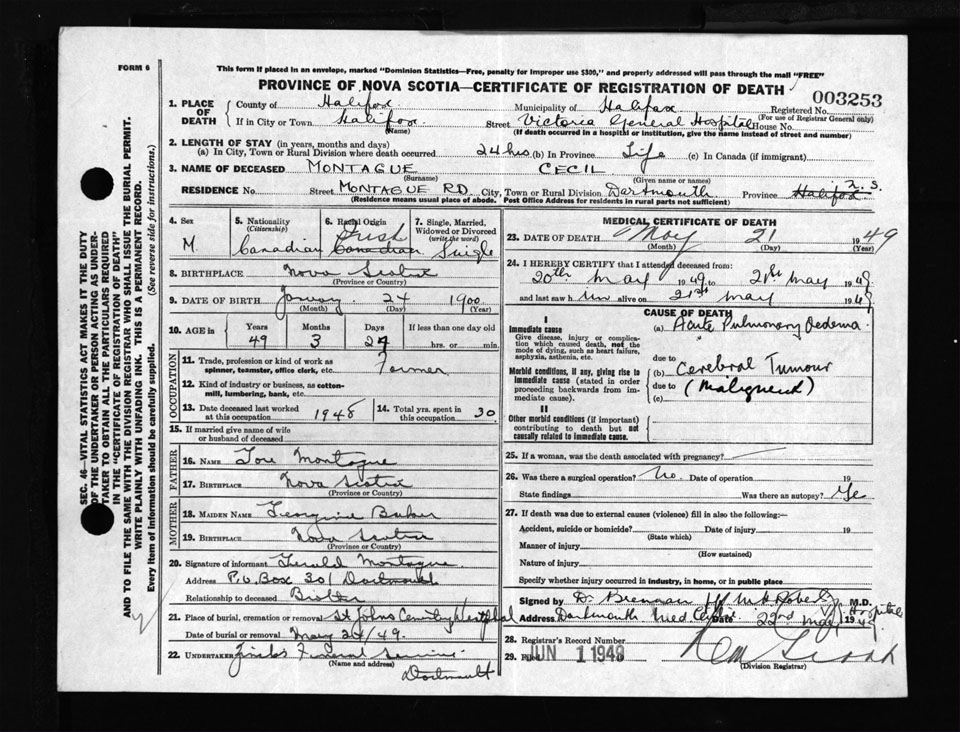 FORM 6
This form if placed in an envelope, marked "Dominion Statistics—Free, penalty for improper use $300," and properly addressed will pass through the mail "FREE"
PROVINCE OF NOVA SCOTIA—CERTIFICATE OF REGISTRATION OF DEATH
003253
1. PLACE OF DEATH
County of Halifax Municipality of Halifax Registered No.
(For use of Registrar General only)
If in City or Town Halifax Street Victoria General Hospital House No.
(Name) (If death occurred in a hospital or institution, give the name instead of street and number)
2. LENGTH OF STAY (in years, months and days)
(a) In City, Town or Rural Division where death occurred 24 hrs (b) In Province Life (c) In Canada (if immigrant)
3. NAME OF DECEASED MONTAGUE CECIL
(Surname) (Given name or names)
RESIDENCE No. Street MONTAGUE RD. City, Town or Rural Division Dartmouth Province Halifax N.S.
(Residence means usual place of abode. Post Office Address for residents in rural parts not sufficient)
4. Sex M.
5. Nationality (Citizenship) Canadian
6. Racial Origin Irish Canadian
7. Single, Married, Widowed or Divorced (write the word) Single
8. BIRTHPLACE Nova Scotia
(Province or Country)
9. DATE OF BIRTH January 24 1900
(Month) (Day) (Year)
10. AGE in Years Months Days If less than one day old
49 3 27 hrs. or min.
OCCUPATION
11. Trade, profession or kind of work as spinner, teamster, office clerk, etc. Farmer
12. Kind of industry or business, as cotton-mill, lumbering, bank, etc.
13. Date deceased last worked at this occupation 1948
14. Total yrs. spent in this occupation 30
15. If married give name of wife or husband of deceased
FATHER
16. NAME Montague
17. BIRTHPLACE Nova Scotia
(Province or Country)
MOTHER
18. MAIDEN NAME Georgine Baker
19. BIRTHPLACE Nova Scotia
(Province or Country)
20. Signature of informant Gerald Montague
Address P.O. Box 301 Dartmouth
Relationship to deceased Brother
21. Place of burial, cremation or removal St Johns Cemetry Westphal
Date of burial or removal May 24/49.
22. UNDERTAKER Funeral Service
(Name and address)
Dartmouth
MEDICAL CERTIFICATE OF DEATH
23. DATE OF DEATH May 21 1949
(Month) (Day)
24. I HEREBY CERTIFY that I attended deceased from:
20th May 1949 to 21st May 1949
and last saw him alive on 21st May 1949
CAUSE OF DEATH
I
Immediate cause
Give disease, injury or complication which caused death, not the mode of dying, such as heart failure, asphyxia, asthenia, etc.
(a) Acute Pulmonary Oedema.
due to
Morbid conditions, if any, giving rise to immediate cause (stated in order proceeding backwards from immediate cause).
(b) Cerebral Tumour
due to (Malignant)
(c)
II
Other morbid conditions (if important) contributing to death but not causally related to immediate cause.
25. If a woman, was the death associated with pregnancy?
26. Was there a surgical operation? No. Date of operation 19
State findings Was there an autopsy?
27. If death was due to external causes (violence) fill in also the following:—
Accident, suicide or homicide? Date of injury 19
(State which)
Manner of injury
(How sustained)
Nature of injury
Specify whether injury occurred in industry, in home, or in public place
Signed by D. Brennan M.D.
Address Dartmouth Med Date 22nd May 1949.
28. Registrar's Record Number
29. Filed JUN 1 1949
(Division Registrar)
SEC. 46—VITAL STATISTICS ACT MAKES IT THE DUTY
OF THE UNDERTAKER OR PERSON ACTING AS UNDERTAKER TO OBTAIN ALL THE PARTICULARS REQUIRED
IN THE "CERTIFICATE OF REGISTRATION OF DEATH"
AND TO FILE THE SAME WITH THE DIVISION REGISTRAR WHO SHALL ISSUE THE BURIAL PERMIT.
WRITE PLAINLY WITH UNFADING INK. THIS IS A PERMANENT RECORD.
Every item of Information should be carefully supplied. (See reverse side for instructions.)